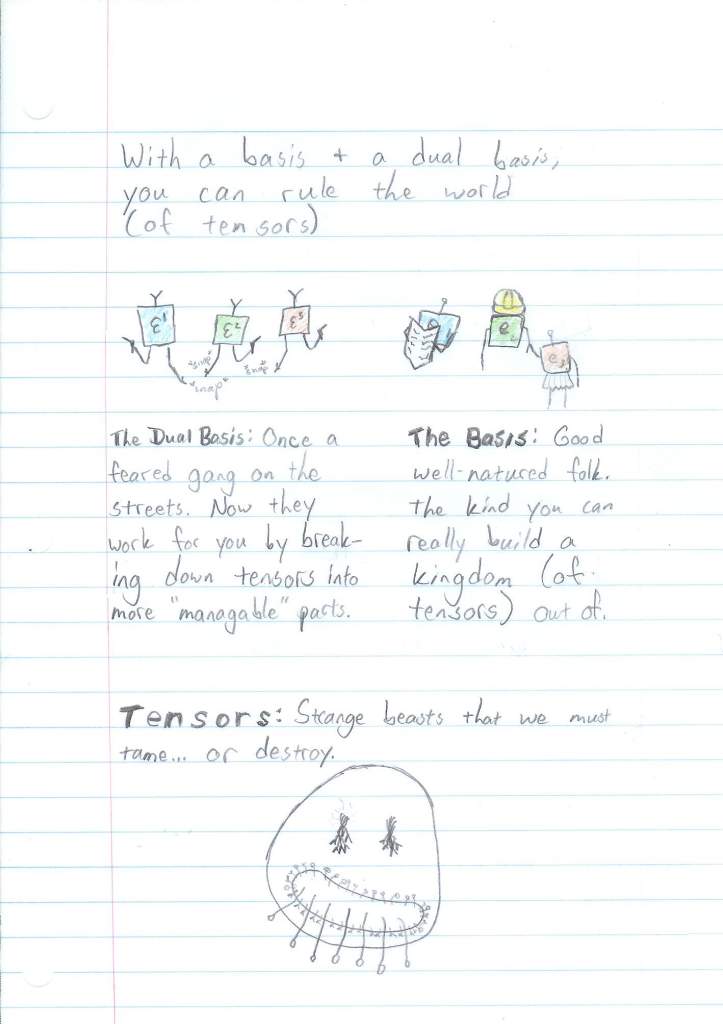 With a basis + a dual basis,
you can rule the world
(of tensors)
ε¹
ε²
ε³
"snap"
"snap"
"snap"
e₁
e₂
e₃
The Dual Basis: Once a
feared gang on the
streets. Now they
work for you by break-
ing down tensors into
more "managable" parts.
The Basis: Good
well-natured folk.
The kind you can
really build a
kingdom (of
tensors) out of.
Tensors: Strange beasts that we must
tame... or destroy.